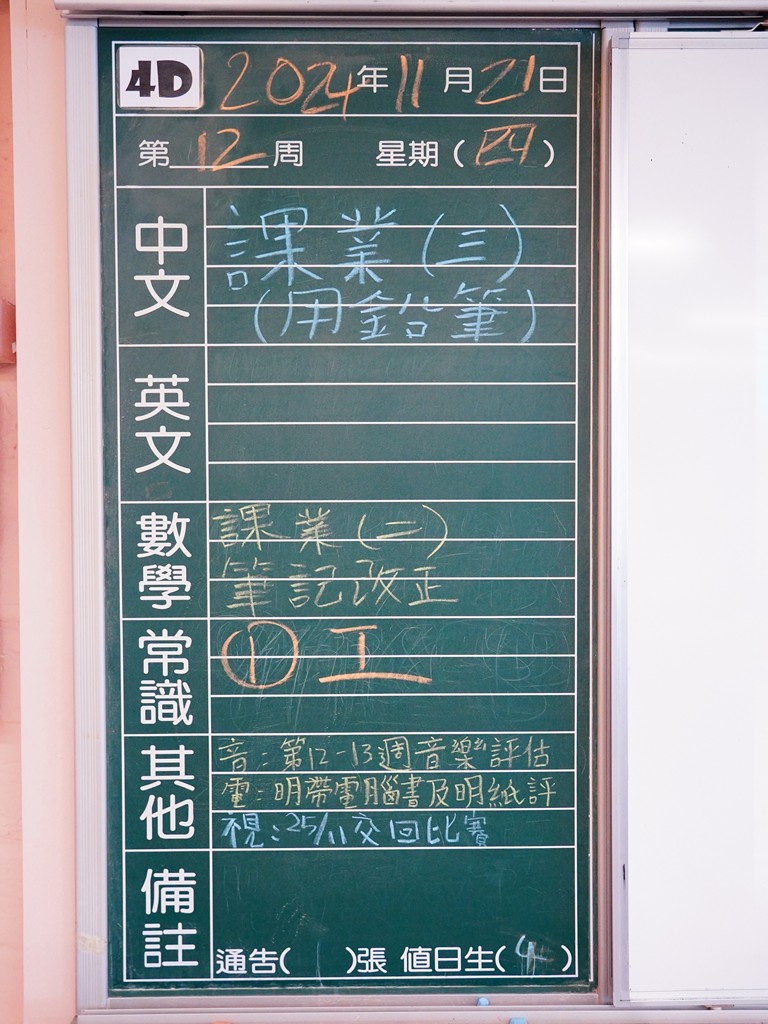 4D 2024年11月21日
第12周 星期(四)
中文 課業(三)
(用鉛筆)
英文
數學 課業(二)
筆記改正
常識 ① 工
其他 音:第12-13週音樂評估
電:明帶電腦書及明紙評
視:25/11交回比賽
備註
通告( )張 值日生(4)